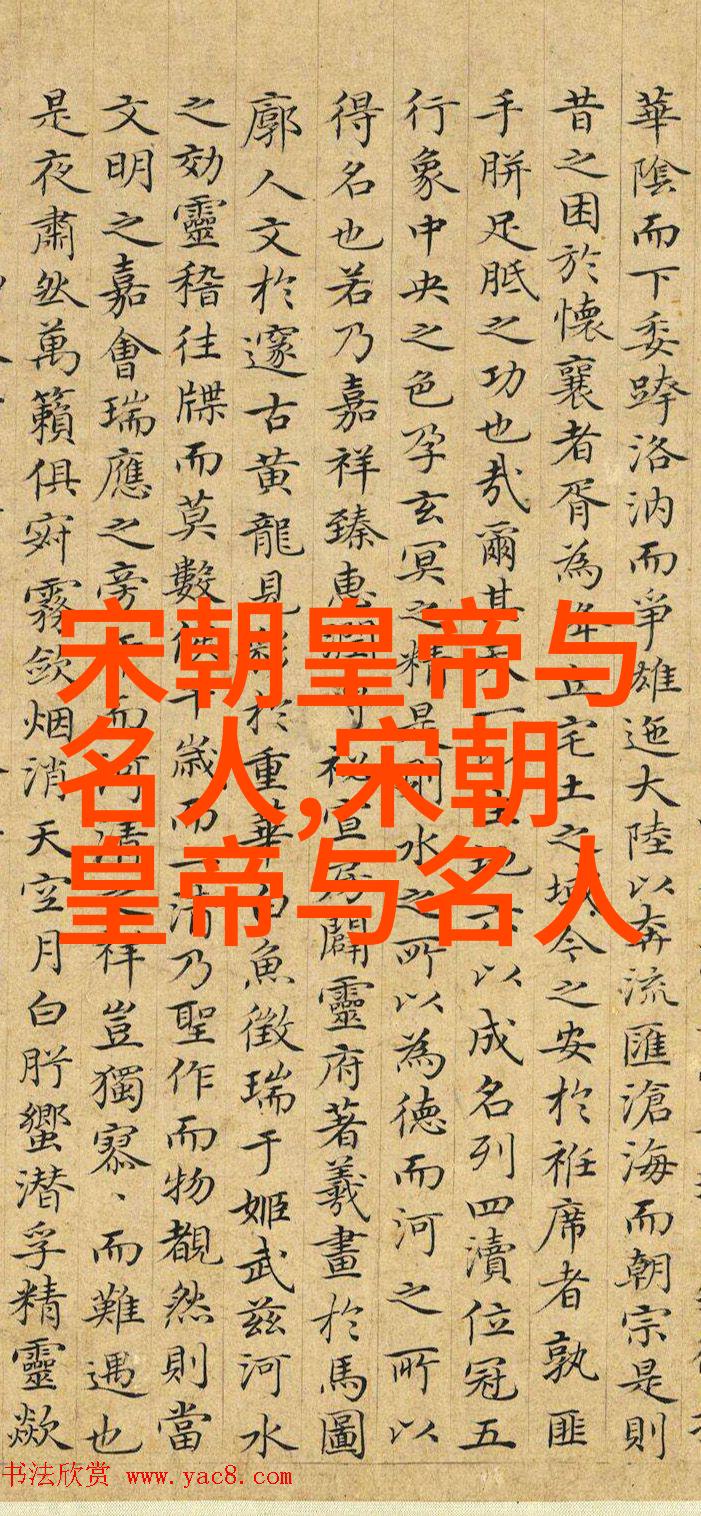 華陰而下委跨洛汭而爭雄迤大陸以奔流匯滄海而朝宗是則
昔之困於懷襄者胥為年立宅土之域今之安於袵席者孰匪
手胼足胝之功也哉爾其天一以成名列四瀆位冠五
行象中央之色孕玄冥之精是則水之所以為德而河之所以
得名也若乃嘉祥臻惠秘宣房闢靈府著羲畫於馬圖
廓人文於邃古黃龍見於重華白魚徵瑞于姬武茲河水
之効靈稽往牒而莫數千歲而一清乃聖作而物覩然則當
文明之嘉會瑞應之旁而河清之祥豈獨寥、而難遇也
是夜肅然萬籟俱寂霧斂烟消天空月白肸蠁潛孚精靈歘
宋朝皇帝与
名人,宋朝
皇帝与名人
书法欣赏 www.yac8.com